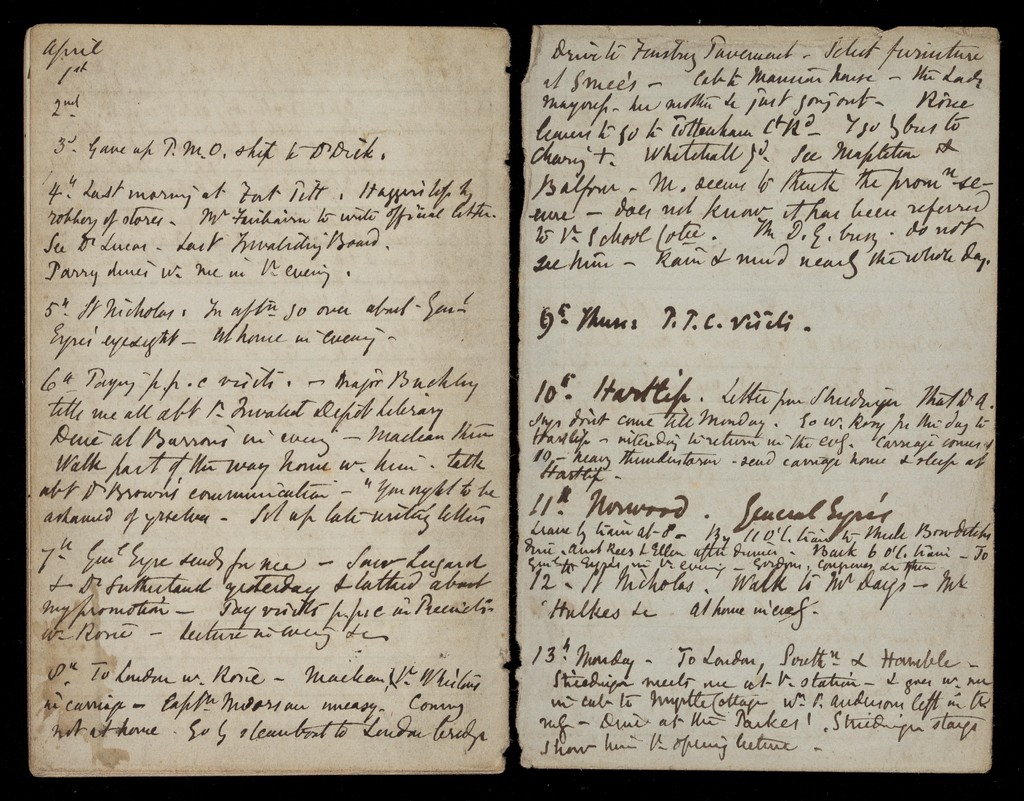 April
1st
2nd
3d. Gave up P.M.O. ship to Dr Dick.
4th Last morning at Fort Pitt. by
robbery of stores. Mr Fairbairn to write official letter.
See Dr Lucas - Last Invaliding Board.
Parry dines w. me in ye evening.
5th St Nicholas: In aftn go over about Genl
Eyre's eyesight - At home in evening -
6th Paying p.p.c visits. - Major Buckley
tells me all abt ye Invalid Depôt Library
Dine at Burrows in eveng - Maclean there
Walk part of the way home w. him - talk
abt Dr Brown's communication - "You ought to be
ashamed of yrselves - Sit up late writing letters
7th Genl Eyre sends for me - Saw Lugard
& Dr Sutherland yesterday & talked about
my promotion - Pay visits p.p.c in Precincts
w. Rosie - Lecture in eveng &c
8th To London w. Rosie - Maclean, ye
in carriage - uneasy. Coming
not at home. Go by steamboat to London bridge
Drive to Finsbury Pavement - Select furniture
at Smee's - Cab to Mansion house - the Lady
mayoress - her mother &c just going out - Rosie
leaves to go to Tottenham Ct Rd - I go by bus to
Charing +. Whitehall yd. See Mapleton &
Balfour - M. seems to think the promn se-
cure - does not know it has been referred
to ye School Cotee. The D.G. busy - do not
see him - Rain & mud nearly the whole day.
9th Thurs: P.P.C. visits.
10th. Hartlip. Letter from that Dr A.
says don't come till Monday. Go w. Rosy for the day to
Hartlip - intending to return in the evg. Carriage comes at
10 - heavy thunderstorm - send carriage home & sleep at
Hartlip -
11th Norwood. General Eyre's
Leave by train at 8 - By 11 O'C. train to
Dine - Aunt Rees & Ellen after dinner. Back 6 O'C. train - To
Genl Eyre's in ye evening - Gordons, Congreves &c there
12 - St Nicholas. Walk to Mr Days - Mr
Hulkes &c At home in eveg -
13th Monday - To London, Southn & Hamble -
meets me at ye station - & goes w. me
in cab to Myrtle Cottage Wm P. Anderson left in the
mg - Dine at the Parkes! stays
show him ye opening lecture -